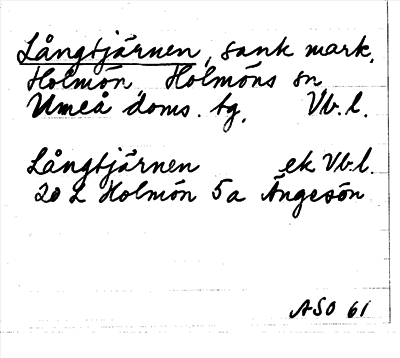 Långtjärnen, sank mark,
Holmön, Holmöns sn
Umeå doms. tg, Vb. l.
Långtjärnen ek Vb. l.
20 L Holmön 5a Ängesön
ASO 61